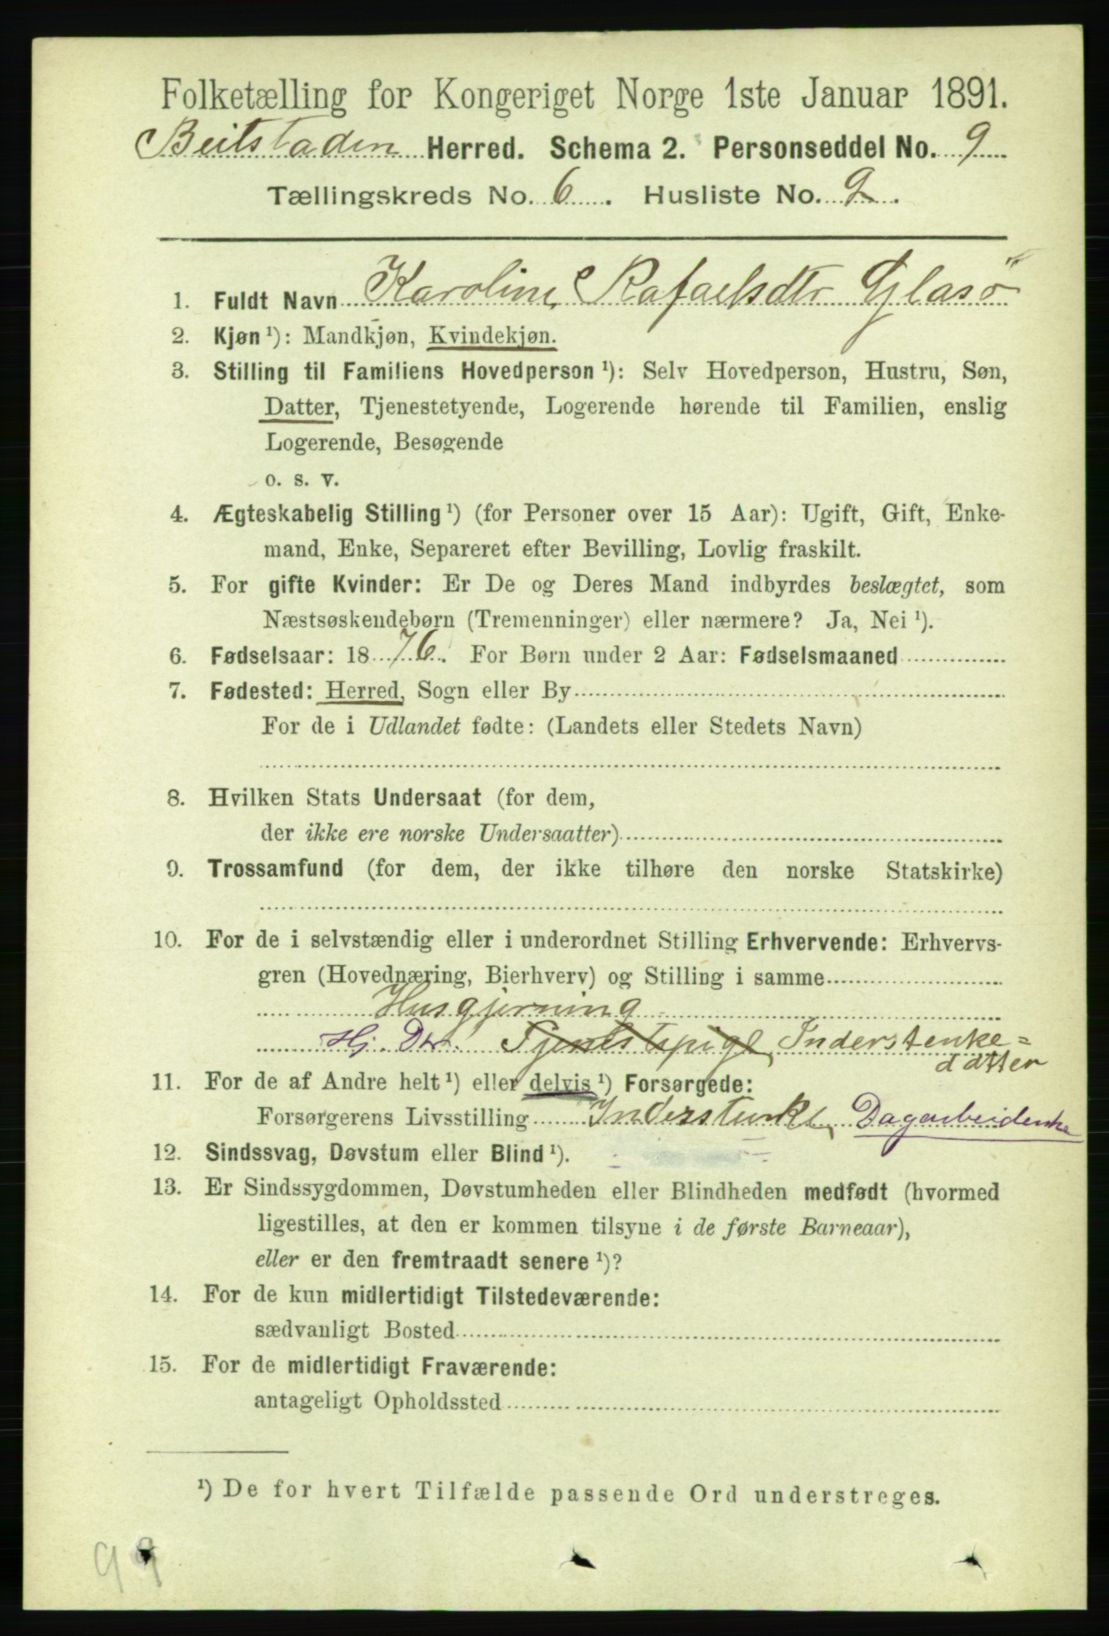 Folketælling for Kongeriget Norge 1ste Januar 1891.
Beitstaden Herred. Schema 2. Personseddel No. 9
Tællingskreds No. 6. Husliste No. 2.
1. Fuldt Navn Karoline Rafaelsdtr Glasø
2. Kjøn ¹): Mandkjøn, Kvindekjøn.
3. Stilling til Familiens Hovedperson ¹): Selv Hovedperson, Hustru, Søn,
Datter, Tjenestetyende, Logerende hørende til Familien, enslig
Logerende, Besøgende
o. s. v.
4. Ægteskabelig Stilling ¹) (for Personer over 15 Aar): Ugift, Gift, Enke-
mand, Enke, Separeret efter Bevilling, Lovlig fraskilt.
5. For gifte Kvinder: Er De og Deres Mand indbyrdes beslægtet, som
Næstsøskendebørn (Tremenninger) eller nærmere? Ja, Nei ¹).
6. Fødselsaar: 1876. For Børn under 2 Aar: Fødselsmaaned
7. Fødested: Herred, Sogn eller By
For de i Udlandet fødte: (Landets eller Stedets Navn)
8. Hvilken Stats Undersaat (for dem,
der ikke ere norske Undersaatter)
9. Trossamfund (for dem, der ikke tilhøre den norske Statskirke)
10. For de i selvstændig eller i underordnet Stilling Erhvervende: Erhvervs-
gren (Hovednæring, Bierhverv) og Stilling i samme
Husgjerning
Hj. Dtr. Tjenestepige, Inderstenke=
datter
11. For de af Andre helt ¹) eller delvis ¹) Forsørgede:
Forsørgerens Livsstilling Inderstenke, Dagarbeidenke
12. Sindssvag, Døvstum eller Blind ¹).
13. Er Sindssygdommen, Døvstumheden eller Blindheden medfødt (hvormed
ligestilles, at den er kommen tilsyne i de første Barneaar),
eller er den fremtraadt senere ¹)?
14. For de kun midlertidigt Tilstedeværende:
sædvanligt Bosted
15. For de midlertidigt Fraværende:
antageligt Opholdssted
¹) De for hvert Tilfælde passende Ord understreges.
99